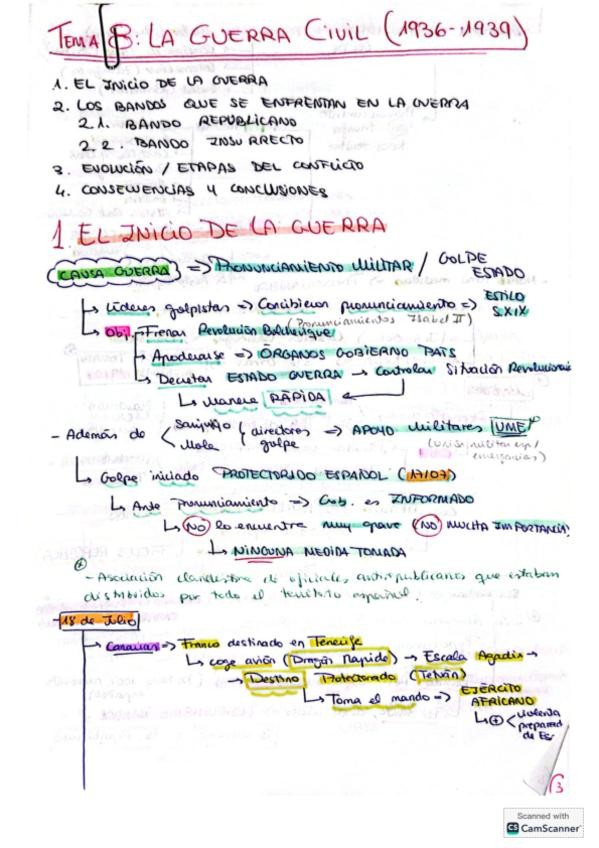 TEMA 8: LA GUERRA CIVIL (1936-1939)
1. EL INICIO DE LA GUERRA
2. LOS BANDOS QUE SE ENFRENTAN EN LA GUERRA
2.1. BANDO REPUBLICANO
2.2. BANDO INSURRECTO
3. EVOLUCIÓN / ETAPAS DEL CONFLICTO
4. CONSECUENCIAS Y CONCLUSIONES
1. EL INICIO DE LA GUERRA
CAUSA GUERRA => PRONUNCIAMIENTO MILITAR / GOLPE ESTADO
↳ Líderes golpistas → Concibieron pronunciamiento => ESTILO S.XIX
(Pronunciamientos Isabel II)
↳ Obj. Frenar Revolución Bolchevique
↳ Apoderarse => ÓRGANOS GOBIERNO PAÍS
↳ Decretar ESTADO GUERRA → Controlar Situación Revolucionaria
↳ Manera RÁPIDA
- Además de < Sanjurjo Mola / directores golpe => APOYO Militares UME
(unión militar esp/
↳ Golpe iniciado PROTECTORADO ESPAÑOL (17/07)
↳ Ante Pronunciamiento => Gob. es INFORMADO
↳ NO lo encuentra muy grave (NO MUCHA IMPORTANCIA)
↳ NINGUNA MEDIDA TOMADA
- Asociación clandestina de oficiales antirrepublicanos que estaban
distribuidos por todo el territorio español.
- 18 de Julio
↳ Canarias => Franco destinado en Tenerife
↳ coge avión (Dragón Rapide) → Escala Agadir →
→ Destino Protectorado (Tetuán)
↳ Toma el mando => EJÉRCITO AFRICANO
↳ + < violenta preparada de Es.
3
Scanned with
CS CamScanner